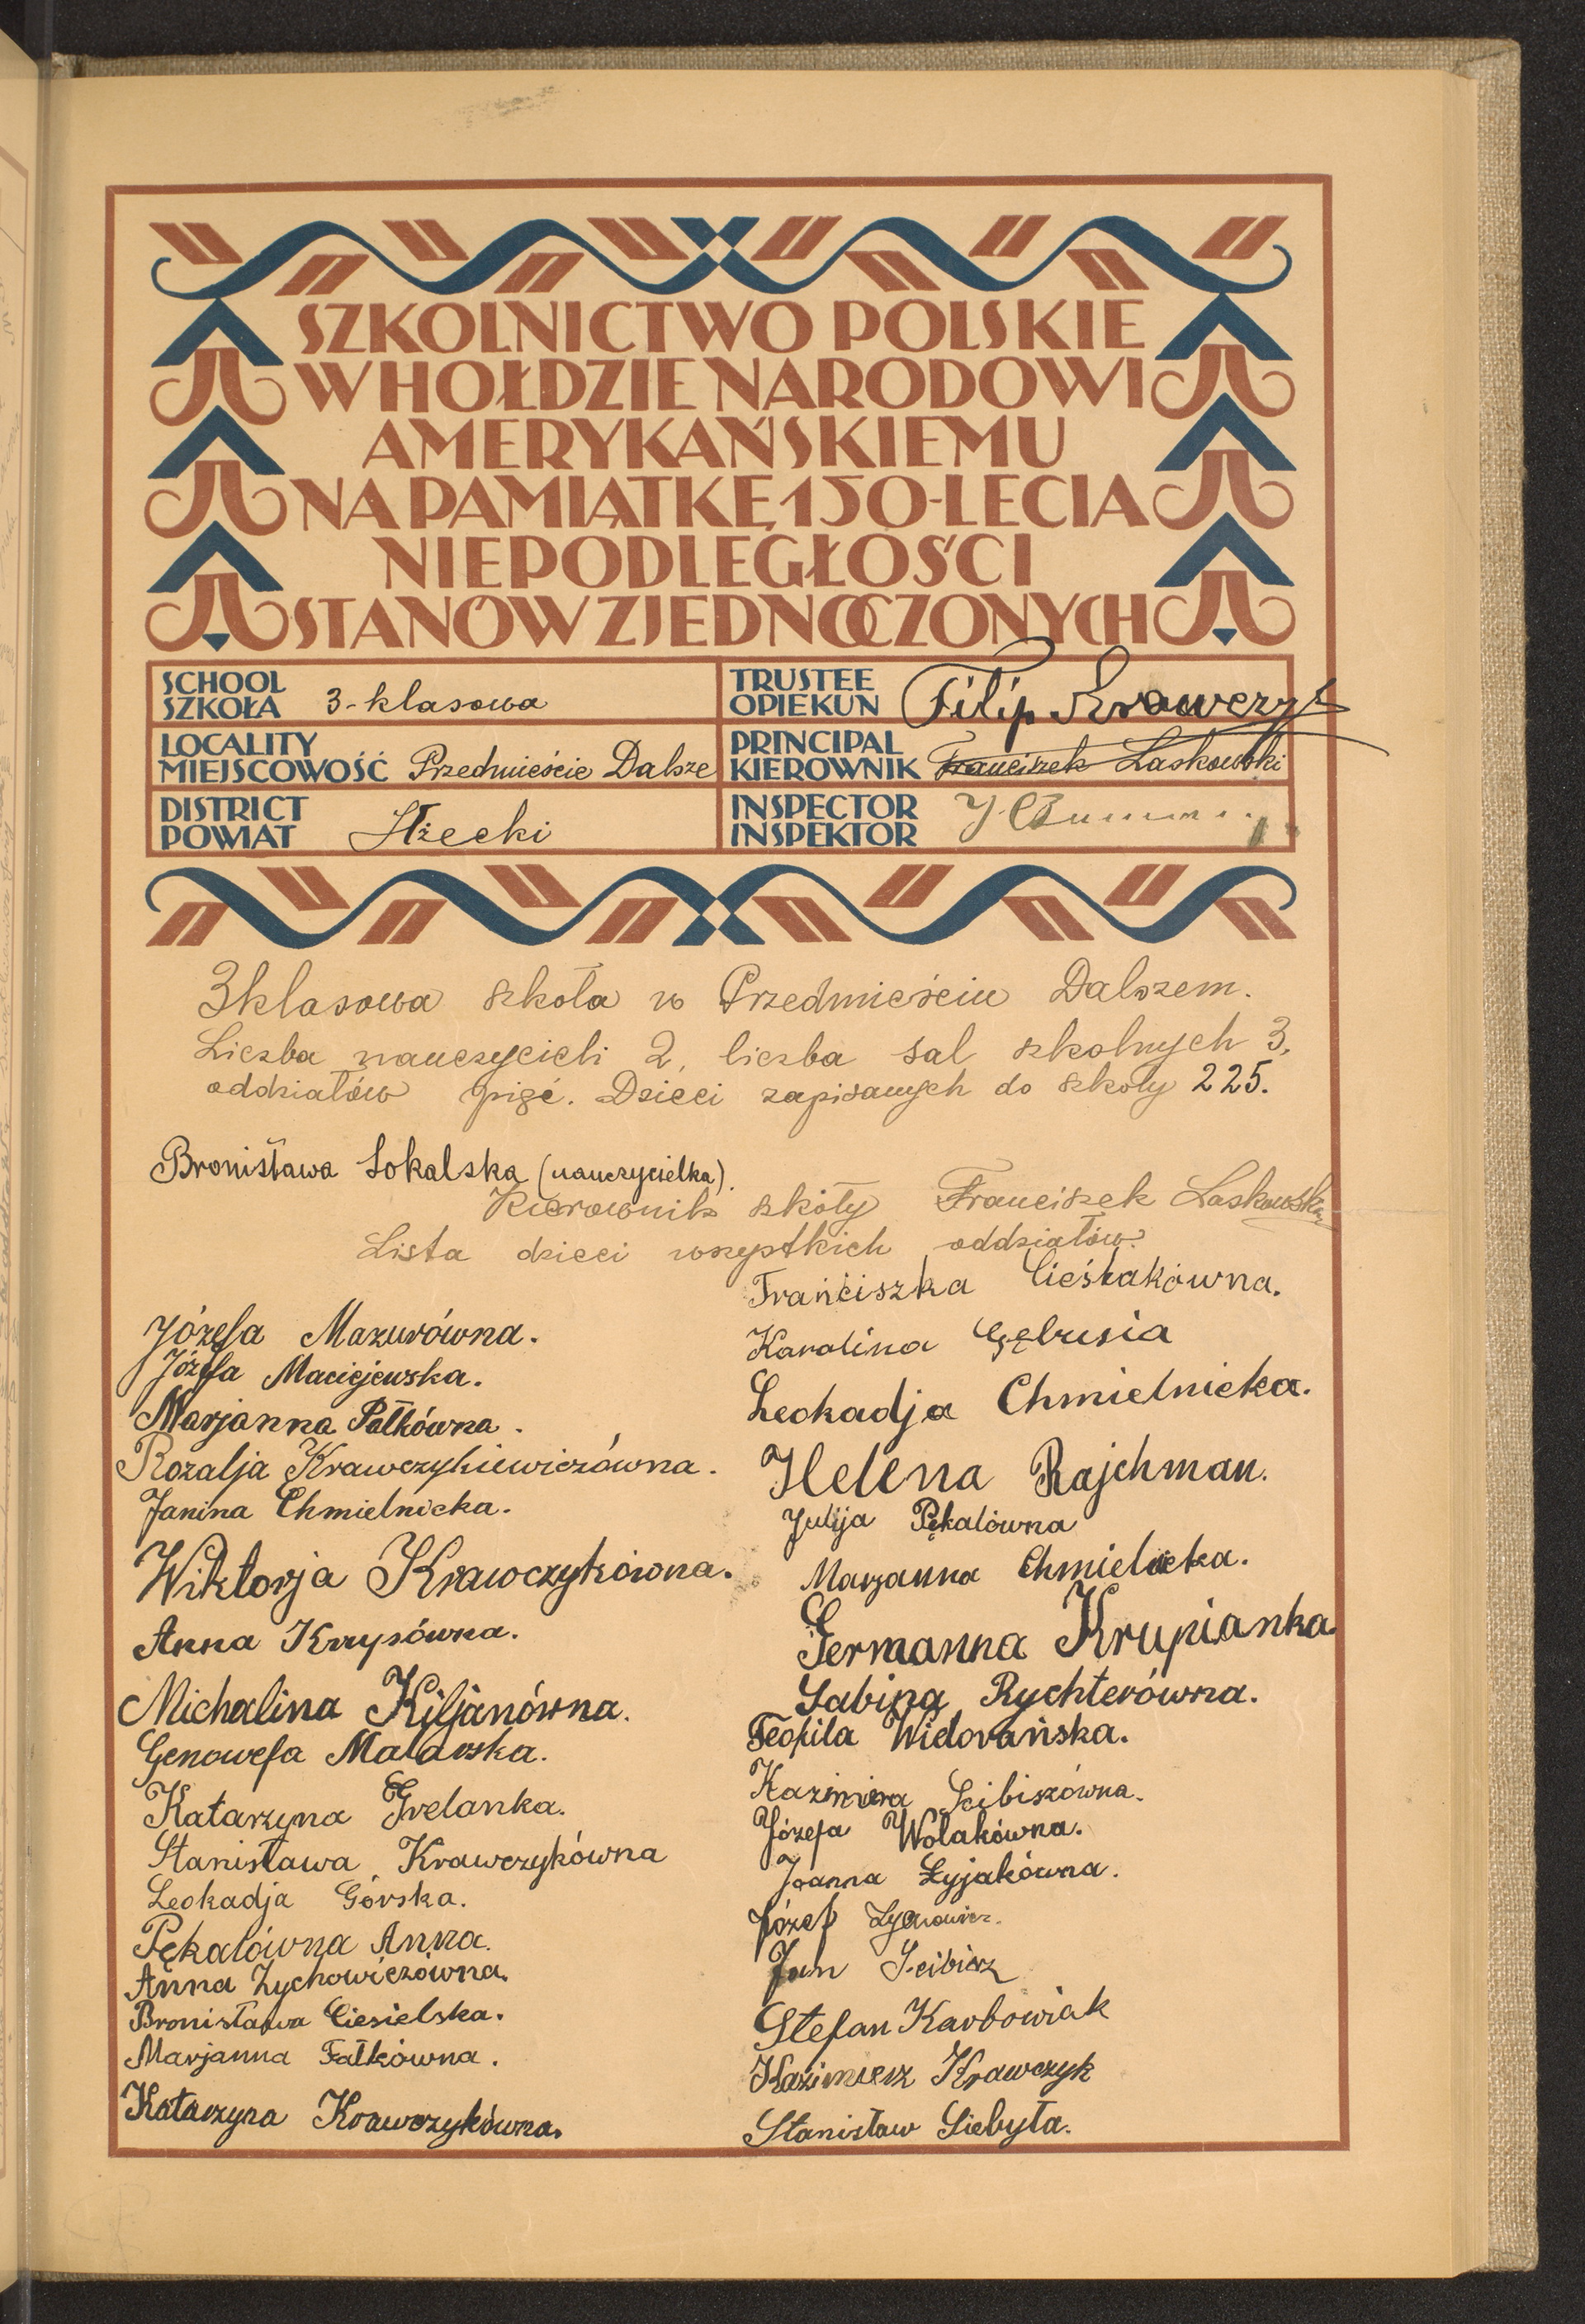 SZKOLNICTWO POLSKIE
W HOŁDZIE NARODOWI
AMERYKAŃSKIEMU
NA PAMIĄTKĘ 150-LECIA
NIEPODLEGŁOŚCI
STANÓW ZJEDNOCZONYCH
SCHOOL
SZKOŁA 3-klasowa
TRUSTEE
OPIEKUN Filip Krawczyk
LOCALITY
MIEJSCOWOŚĆ Przedmieście Dalsze
PRINCIPAL
KIEROWNIK Franciszek Laskowski
DISTRICT
POWIAT Iłżecki
INSPECTOR
INSPEKTOR
3klasowa szkoła w Przedmieściu Dalszem.
Liczba nauczycieli 2, liczba sal szkolnych 3,
oddziałów pięć. Dzieci zapisanych do szkoły 225.
Bronisława Sokalska (nauczycielka).
Kierownik szkoły Franciszek Laskowski
Lista dzieci wszystkich oddziałów.
Józefa Mazurówna.
Józefa Maciejewska.
Marjanna Pałkówna.
Rozalja Krawczykiewiczówna.
Janina Chmielnicka.
Wiktorja Krawczykówna.
Anna Krzysówna.
Michalina Kiljanówna.
Genowefa Malarska.
Katarzyna Grelanka.
Stanisława Krawczykówna
Leokadja Górska.
Pękalówna Anna.
Anna Zychowiczówna.
Bronisława Ciesielska.
Marjanna Fałkówna.
Katarzyna Krawczykówna.
Franciszka Cieślakówna.
Karolina Gębusia
Leokadja Chmielnicka.
Helena Rajchman.
Julija Pękalówna
Marjanna Chmielnicka.
Germanna Krupianka
Sabina Rychterówna.
Teofila Widorańska.
Kazimiera Scibiszówna.
Józefa Wolakówna.
Joanna Łyjakówna.
Józef
Jan Scibisz
Stefan Karbowiak
Kazimierz Krawczyk
Stanisław Siebyła.